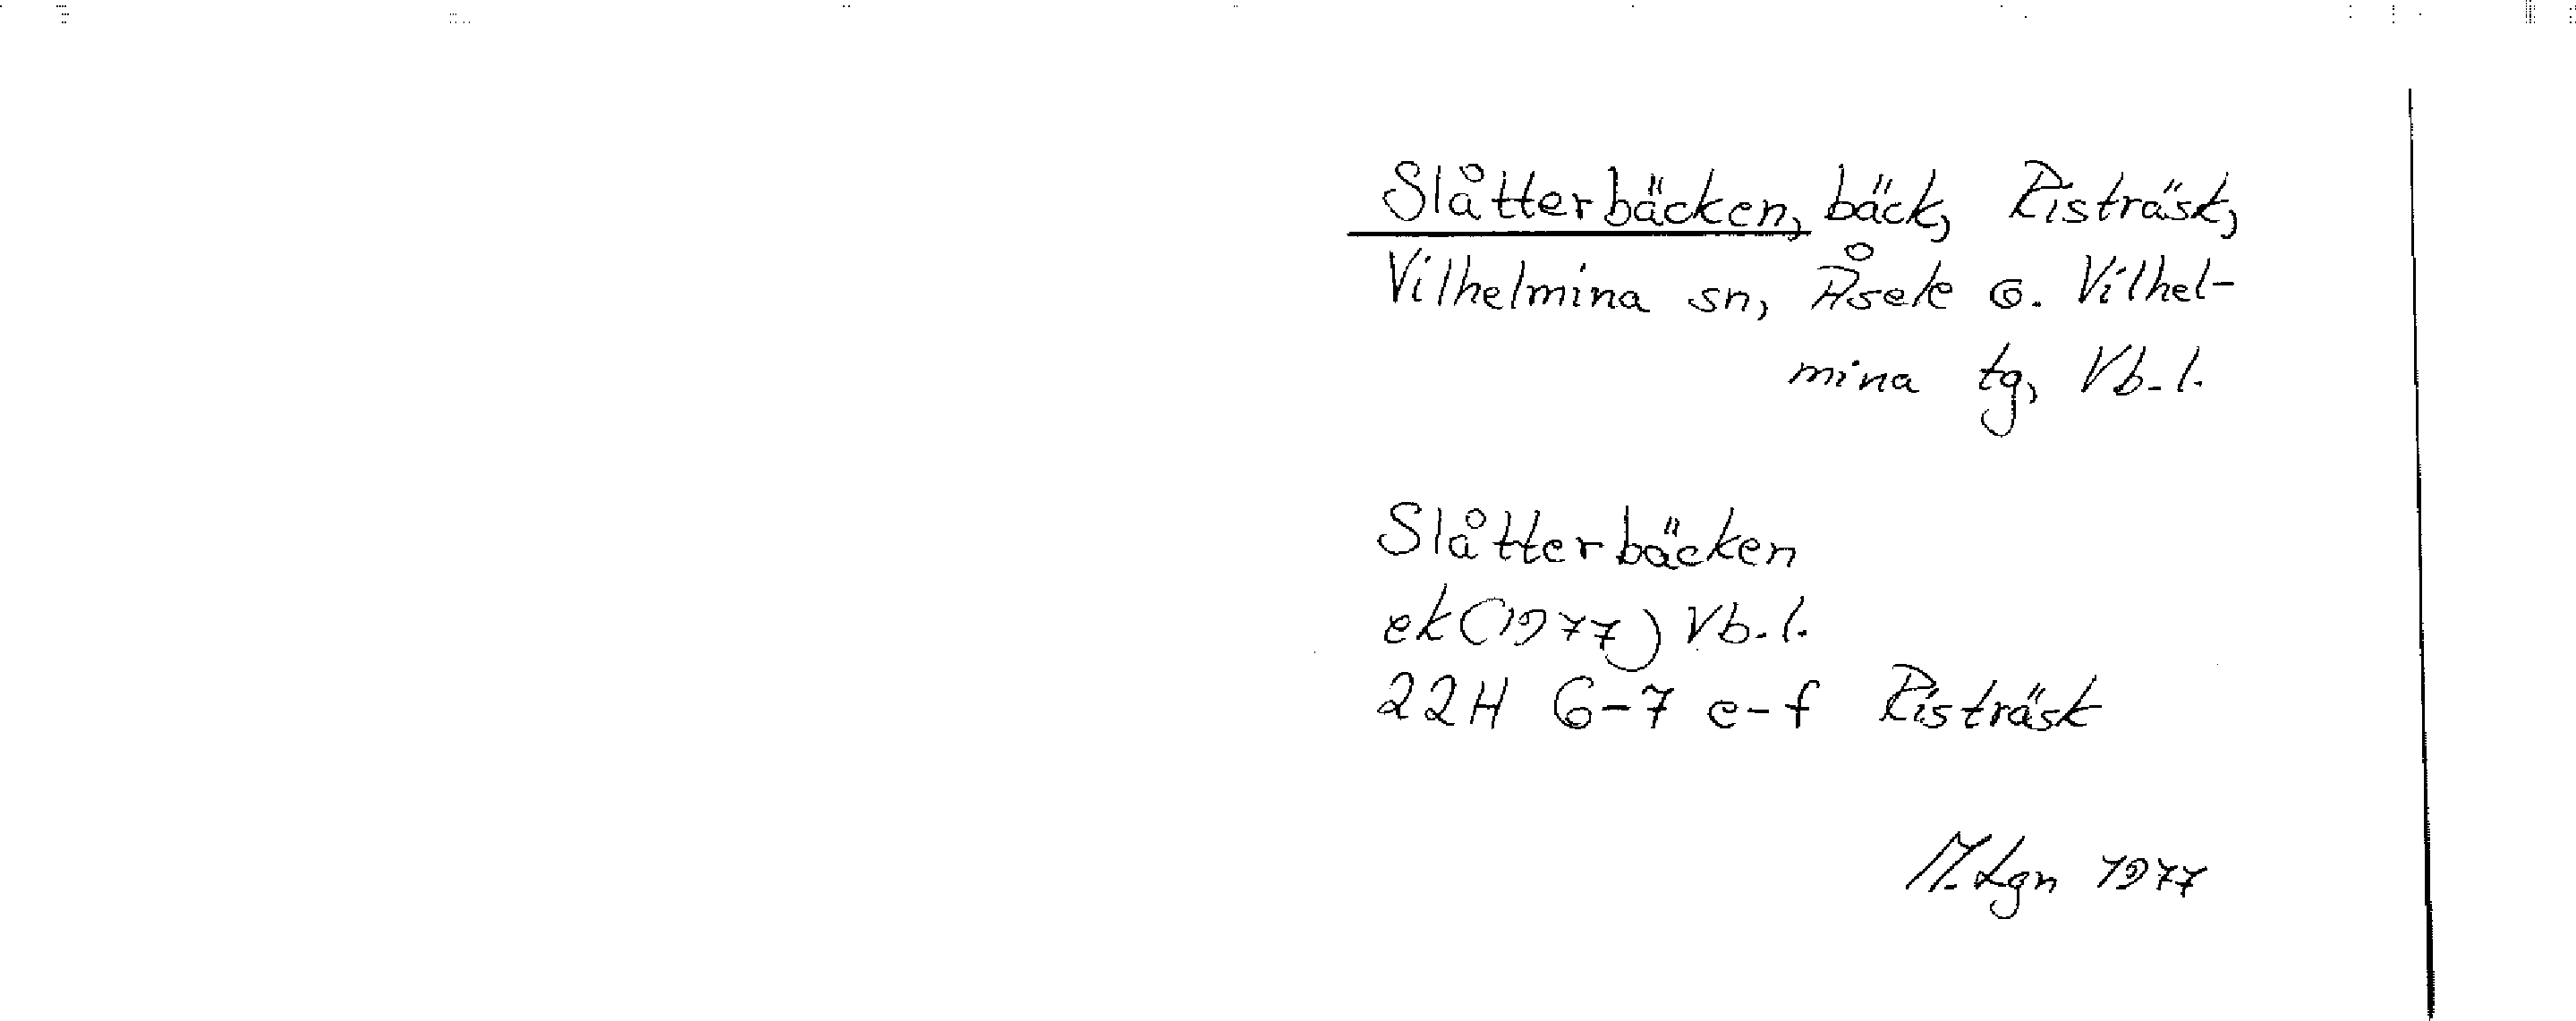 Slåtterbäcken, bäck, Risträsk,
Vilhelmina sn, Åsele o. Vilhel-
mina tg, Vb. l.
Slåtterbäcken
ek (1977) Vb. l.
22H 6-7 e-f Risträsk
M. Lgn 1977